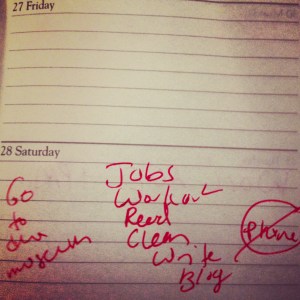 27 Friday
28 Saturday
Jobs
Workout
Read
Clean
Write
Blog
Go
to
the
museum
Phone